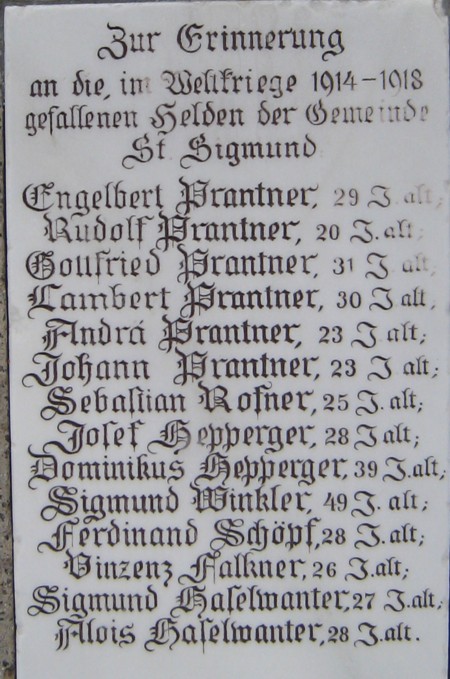 Zur Erinnerung
an die, im Weltkriege 1914-1918
gefallenen Helden der Gemeinde
St. Sigmund
Engelbert Prantner, 29 J. alt;
Rudolf Prantner, 20 J. alt;
Gottfried Prantner, 31 J. alt;
Lambert Prantner, 30 J alt;
Andrä Prantner, 23 J. alt;
Johann Prantner, 23 J alt;
Sebastian Rofner, 25 J. alt;
Josef Hepperger, 28 J alt;
Dominikus Hepperger, 39 J. alt;
Sigmund Winkler, 49 J. alt;
Ferdinand Schöpf, 28 J. alt;
Vinzenz Falkner, 26 J. alt;
Sigmund Haselwanter, 27 J. alt;
Alois Haselwanter, 28 J. alt.